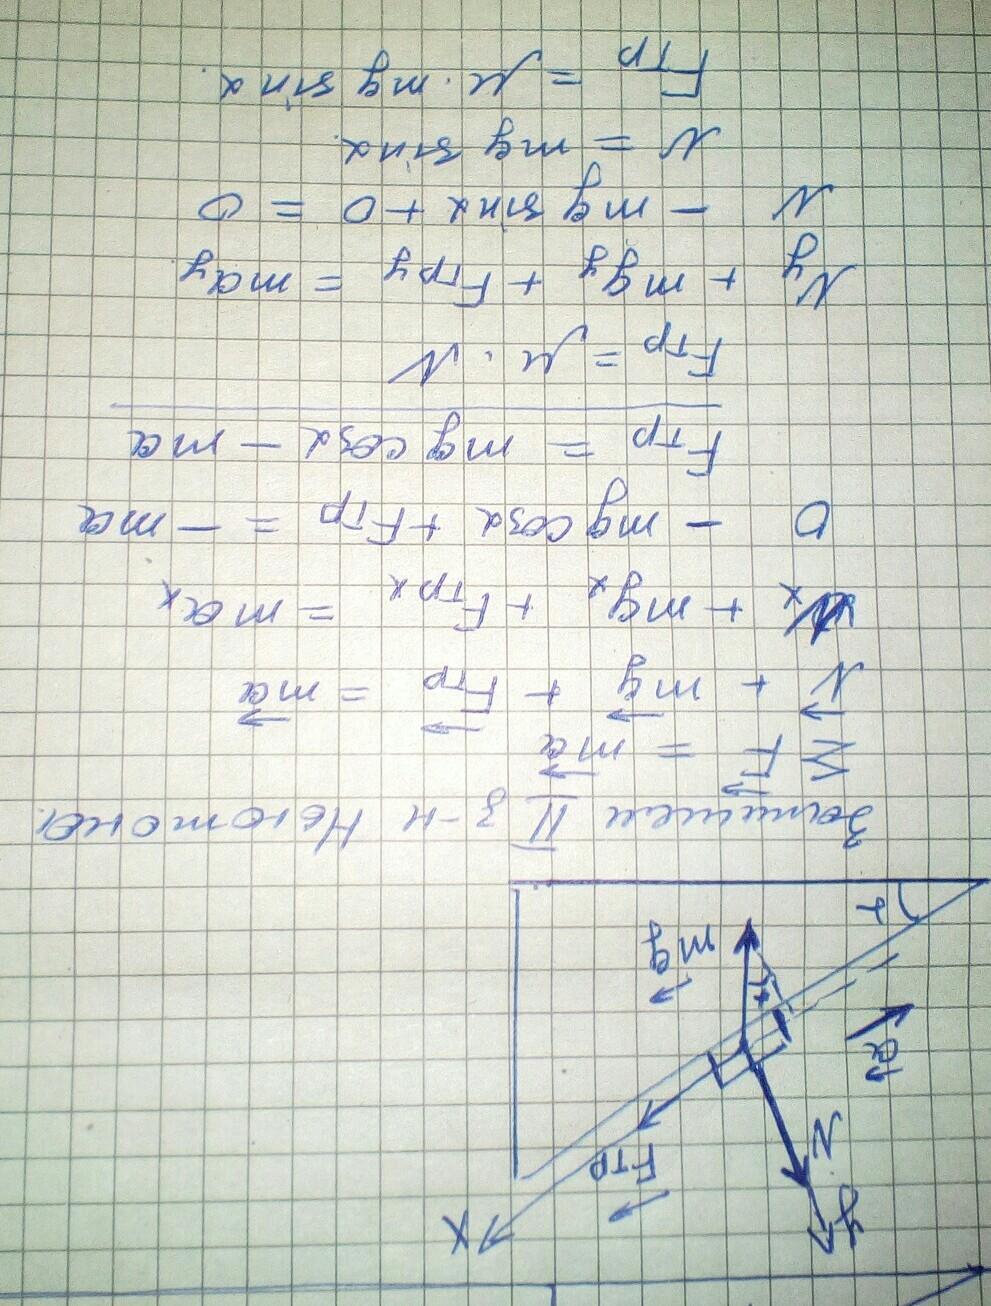 y
X
N
Fтр
a
mg
α
α
Запишем II з-н Ньютона.
ΣF = ma
N + mg + Fтр = ma
Nx + mgx + Fтрx = max
0 - mg cosα + Fтр = -ma
Fтр = mg cosα - ma
Fтр = μ · N
Ny + mgy + Fтрy = may
N - mg sinα + 0 = 0
N = mg sinα.
Fтр = μ · mg sinα.